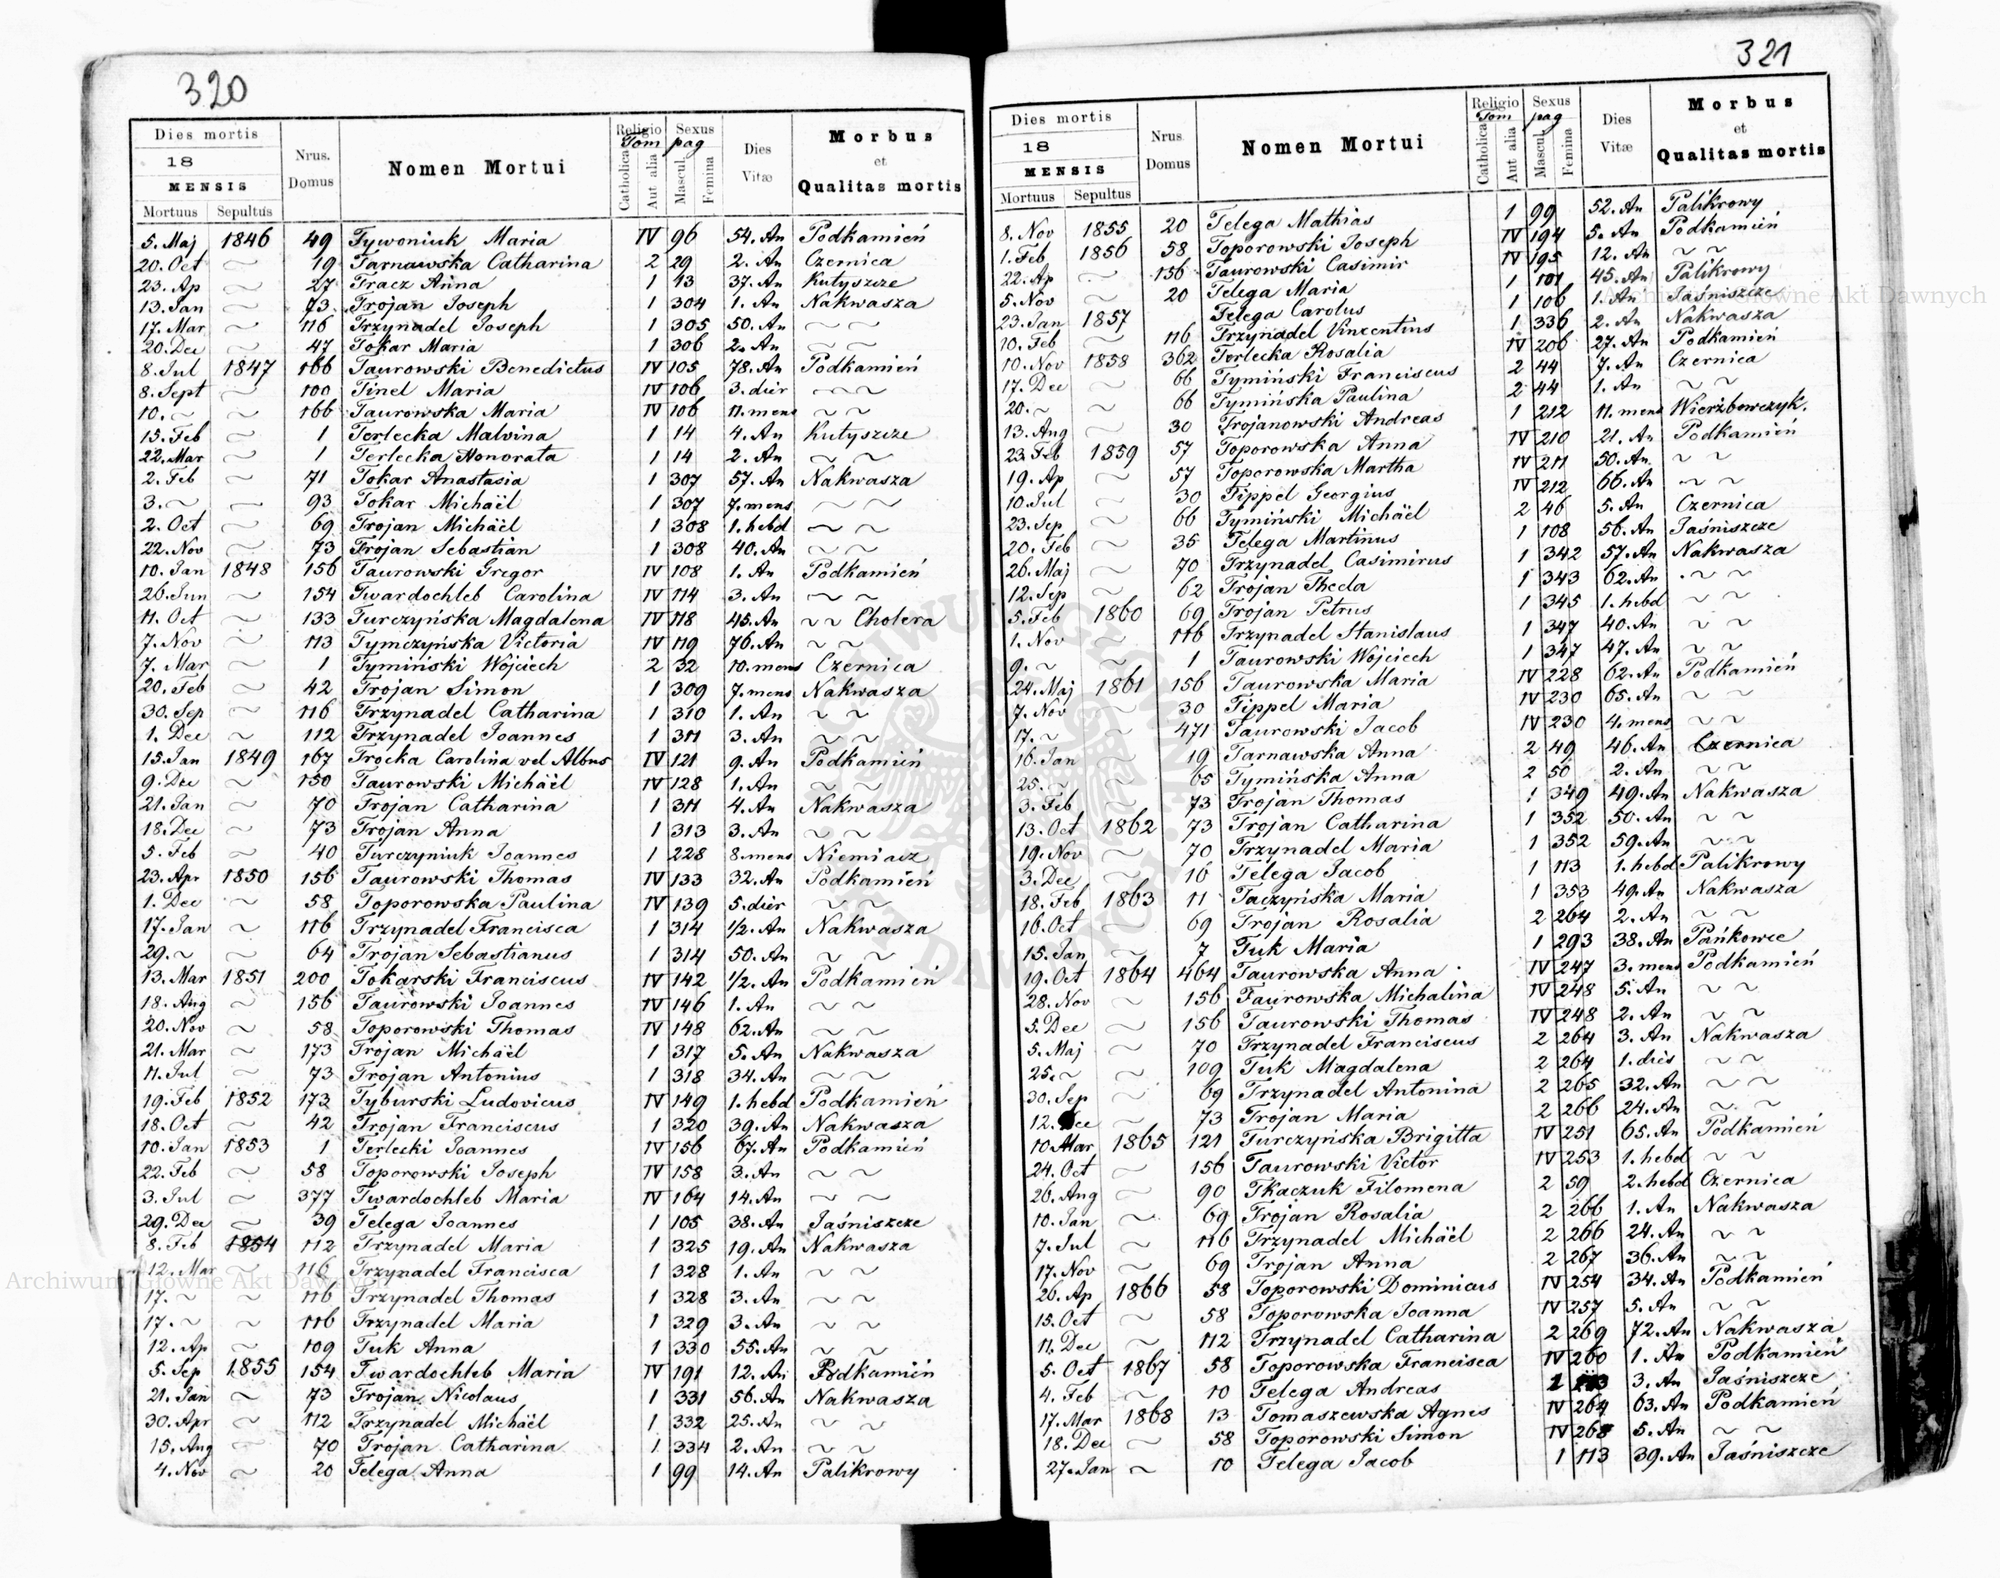 320
Dies mortis
18
MENSIS
Mortuus Sepultus
Nrus. Domus
Nomen Mortui
Religio Tom
Catholica Aut alia
Sexus pag
Mascul. Femina
Dies Vitæ
Morbus et Qualitas mortis
5. Maj 1846 49 Tywoniuk Maria IV 96 54. An Podkamień
20. Oct ~ 19 Tarnawska Catharina 2 29 2. An Czernica
23. Ap ~ 27 Tracz Anna 1 13 37. An Kutyszcze
13. Jan ~ 73 Trojan Joseph 1 304 1. An Nakwasza
17. Mar ~ 116 Trzynadel Joseph 1 305 50. An ~ ~
20. Dec ~ 47 Tokar Maria 1 306 2. An ~ ~
8. Jul 1847 166 Taurowski Benedictus IV 105 78. An Podkamień
8. Sept ~ 100 Tinel Maria IV 106 3. dier ~ ~
10. ~ ~ 166 Taurowska Maria IV 106 11. mens ~ ~
15. Feb ~ 1 Terlecka Malvina 1 14 4. An Kutyszcze
22. Mar ~ 1 Terlecka Honorata 1 14 2. An ~ ~
2. Feb ~ 71 Tokar Anastasia 1 307 57. An Nakwasza
3. ~ ~ 93 Tokar Michaël 1 307 7. mens ~ ~
2. Oct ~ 69 Trojan Michaël 1 308 1. hebd ~ ~
22. Nov ~ 73 Trojan Sebastian 1 308 40. An ~ ~
10. Jan 1848 156 Taurowski Gregor IV 108 1. An Podkamień
26. Jun ~ 154 Twardochleb Carolina IV 114 3. An ~ ~
11. Oct ~ 133 Turczyńska Magdalena IV 118 45. An ~ ~ Cholera
7. Nov ~ 113 Tymczyńska Victoria IV 119 76. An ~ ~
7. Mar ~ 1 Tymiński Wojciech 2 32 10. mens Czernica
20. Feb ~ 42 Trojan Simon 1 309 7. mens Nakwasza
30. Sep ~ 116 Trzynadel Catharina 1 310 1. An ~ ~
1. Dec ~ 112 Trzynadel Joannes 1 311 3. An ~ ~
15. Jan 1849 167 Trocka Carolina vel Albus IV 121 9. An Podkamień
9. Dec ~ 150 Taurowski Michaël IV 128 1. An ~ ~
21. Jan ~ 70 Trojan Catharina 1 311 4. An Nakwasza
18. Dec ~ 73 Trojan Anna 1 313 3. An ~ ~
5. Feb ~ 40 Turczyniuk Joannes 1 228 8. mens Niemiacz
23. Apr 1850 156 Taurowski Thomas IV 133 32. An Podkamień
1. Dec ~ 58 Toporowska Paulina IV 139 5. dier ~ ~
17. Jan ~ 116 Trzynadel Francisca 1 314 1/2. An Nakwasza
29. ~ ~ 64 Trojan Sebastianus 1 314 50. An ~ ~
13. Mar 1851 200 Tokarski Franciscus IV 142 1/2. An Podkamień
18. Aug ~ 156 Taurowski Joannes IV 146 1. An ~ ~
20. Nov ~ 58 Toporowski Thomas IV 148 62. An ~ ~
21. Mar ~ 173 Trojan Michaël 1 317 5. An Nakwasza
11. Jul ~ 73 Trojan Antonius 1 318 34. An ~ ~
19. Feb 1852 173 Tyburski Ludovicus IV 149 1. hebd Podkamień
18. Oct ~ 42 Trojan Franciscus 1 320 39. An Nakwasza
10. Jan 1853 1 Terlecki Joannes IV 156 67. An Podkamień
22. Feb ~ 58 Toporowski Joseph IV 158 3. An ~ ~
3. Jul ~ 377 Twardochleb Maria IV 164 14. An ~ ~
29. Dec ~ 39 Telega Joannes 1 105 38. An Jaśniszcze
8. Feb 1854 112 Trzynadel Maria 1 325 19. An Nakwasza
12. Mar ~ 116 Trzynadel Francisca 1 328 1. An ~ ~
17. ~ ~ 116 Trzynadel Thomas 1 328 3. An ~ ~
17. ~ ~ 116 Trzynadel Maria 1 329 3. An ~ ~
12. Ap ~ 109 Tuk Anna 1 330 55. An ~ ~
5. Sep 1855 154 Twardochleb Maria IV 191 12. An Podkamień
21. Jan ~ 73 Trojan Nicolaus 1 331 56. An Nakwasza
30. Apr ~ 112 Trzynadel Michaël 1 332 25. An ~ ~
15. Aug ~ 70 Trojan Catharina 1 334 2. An ~ ~
4. Nov ~ 20 Telega Anna 1 99 14. An Palikrowy
321
Dies mortis
18
MENSIS
Mortuus Sepultus
Nrus. Domus
Nomen Mortui
Religio Tom
Catholica Aut alia
Sexus pag
Mascul. Femina
Dies Vitæ
Morbus et Qualitas mortis
8. Nov 1855 20 Telega Mathias 1 99 52. An Palikrowy
1. Feb 1856 58 Toporowski Joseph IV 194 5. An Podkamień
22. Ap ~ 156 Taurowski Casimir IV 195 12. An ~ ~
5. Nov ~ 20 Telega Maria 1 101 45. An Palikrowy
23. Jan 1857 Telega Carolus 1 106 1. An Jaśniszcze
10. Feb ~ 116 Trzynadel Vinzentius 1 336 2. An Nakwasza
10. Nov 1858 362 Terlecka Rosalia IV 206 27. An Podkamień
17. Dec ~ 66 Tymiński Franciscus 2 44 7. An Czernica
20. ~ ~ 66 Tymińska Paulina 2 44 1. An ~ ~
13. Aug ~ 30 Trojanowski Andreas 1 212 11. mens Wierzbowczyk.
23. Feb 1859 57 Toporowska Anna IV 210 21. An Podkamień
19. Ap ~ 57 Toporowska Martha IV 211 50. An ~ ~
10. Jul ~ 30 Tippel Georgius IV 212 66. An ~ ~
23. Sep ~ 66 Tymiński Michaël 2 46 5. An Czernica
20. Feb ~ 35 Telega Martinus 1 108 56. An Jaśniszcze
26. Maj ~ 70 Trzynadel Casimirus 1 342 57. An Nakwasza
12. Sep ~ 62 Trojan Thecla 1 343 62. An ~ ~
5. Feb 1860 69 Trojan Petrus 1 345 1. hebd ~ ~
1. Nov ~ 116 Trzynadel Stanislaus 1 347 40. An ~ ~
9. ~ ~ 1 Taurowski Wojciech 1 347 47. An ~ ~
24. Maj 1861 156 Taurowska Maria IV 228 62. An Podkamień
7. Nov ~ 30 Tippel Maria IV 230 65. An ~ ~
17. ~ ~ 471 Taurowski Jacob IV 230 4. mens ~ ~
16. Jan ~ 19 Tarnawska Anna 2 49 46. An Czernica
25. ~ ~ 65 Tymińska Anna 2 50 2. An ~ ~
3. Feb ~ 73 Trojan Thomas 1 349 49. An Nakwasza
13. Oct 1862 73 Trojan Catharina 1 352 50. An ~ ~
19. Nov ~ 70 Trzynadel Maria 1 352 59. An ~ ~
3. Dec ~ 16 Telega Jacob 1 113 1. hebd Palikrowy
18. Feb 1863 11 Taczyńska Maria 1 353 49. An Nakwasza
16. Oct ~ 69 Trojan Rosalia 2 264 2. An ~ ~
15. Jan ~ 7 Tuk Maria 1 293 38. An Pańkowce
19. Oct 1864 464 Taurowska Anna IV 247 3. mens Podkamień
28. Nov ~ 156 Taurowska Michalina IV 248 5. An ~ ~
5. Dec ~ 156 Taurowski Thomas IV 248 2. An ~ ~
5. Maj ~ 70 Trzynadel Franciscus 2 264 3. An Nakwasza
25. ~ ~ 109 Tuk Magdalena 2 264 1. dies ~ ~
30. Sep ~ 69 Trzynadel Antonina 2 265 32. An ~ ~
12. Dec ~ 73 Trojan Maria 2 266 24. An ~ ~
10. Mar 1865 121 Turczyńska Brigitta IV 251 65. An Podkamień
24. Oct ~ 156 Taurowski Victor IV 253 1. hebd ~ ~
26. Aug ~ 90 Tkaczuk Filomena 2 59 2. hebd Czernica
10. Jan ~ 69 Trojan Rosalia 2 266 1. An Nakwasza
7. Jul ~ 116 Trzynadel Michaël 2 266 24. An ~ ~
17. Nov ~ 69 Trojan Anna 2 267 36. An ~ ~
26. Ap 1866 58 Toporowski Dominicus IV 254 34. An Podkamień
15. Oct ~ 58 Toporowska Joanna IV 257 5. An ~ ~
11. Dec ~ 112 Trzynadel Catharina 2 269 72. An Nakwasza
5. Oct 1867 58 Toporowska Francisca IV 260 1. An Podkamień
4. Feb ~ 10 Telega Andreas 1 3. An Jaśniszcze
17. Mar 1868 13 Tomaszewska Agnes IV 264 63. An Podkamień
18. Dec ~ 58 Toporowski Simon IV 268 5. An ~ ~
27. Jan ~ 10 Telega Jacob 1 113 39. An Jaśniszcze
Archiwum Główne Akt Dawnych
Archiwum Główne Akt Dawnych